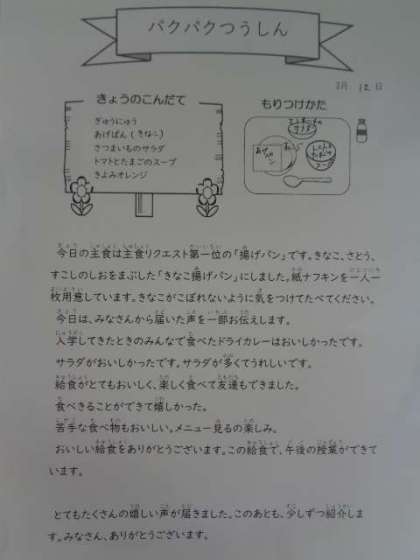 パクパクつうしん
3月 12日
きょうのこんだて
もりつけかた
ぎゅうにゅう
あげぱん（きなこ）
さつまいものサラダ
トマトとたまごのスープ
きよみオレンジ
あげパン
今日の主食は主食リクエスト第一位の「揚げパン」です。きなこ、さとう、
すこしのしおをまぶした「きなこ揚げパン」にしました。紙ナフキンを一人一
枚用意しています。きなこがこぼれないように気をつけてたべてください。
今日は、みなさんから届いた声を一部お伝えします。
入学してきたときのみんなで食べたドライカレーはおいしかったです。
サラダがおいしかったです。サラダが多くてうれしいです。
給食がとてもおいしく、楽しく食べて友達もできました。
食べきることができて嬉しかった。
苦手な食べ物もおいしい。メニュー見るの楽しみ。
おいしい給食をありがとうございます。この給食で、午後の授業ができて
います。
とてもたくさんの嬉しい声が届きました。このあとも、少しずつ紹介しま
す。みなさん、ありがとうございます。